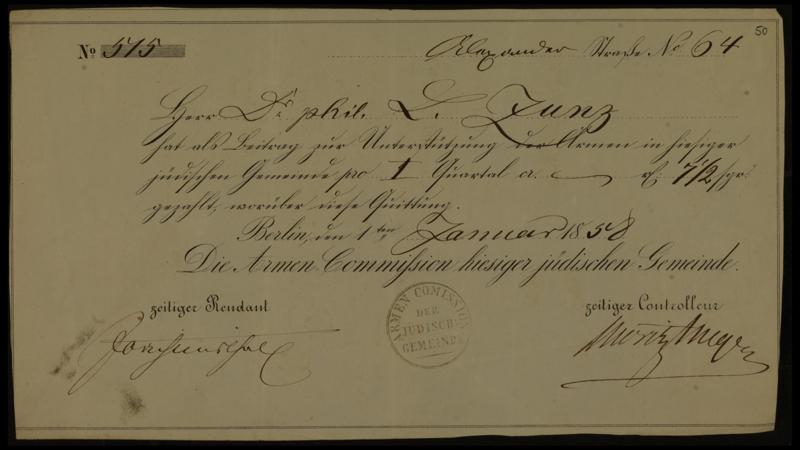 50
No 515
Alexander Straße No 64
Herr Dr. phil. L. Zunz
hat als Beitrag zur Unterstützung der Armen in hiesiger
jüdischen Gemeinde pro I Quartal cr. — rf. 7 1/2 sgr.
gezahlt, worüber diese Quittung.
Berlin, den 1ten Januar 1858
Die Armen Commission hiesiger jüdischen Gemeinde.
zeitiger Rendant
zeitiger Controlleur
ARMEN COMISSION
DER
JÜDISCH:
GEMEINDE
Moritz